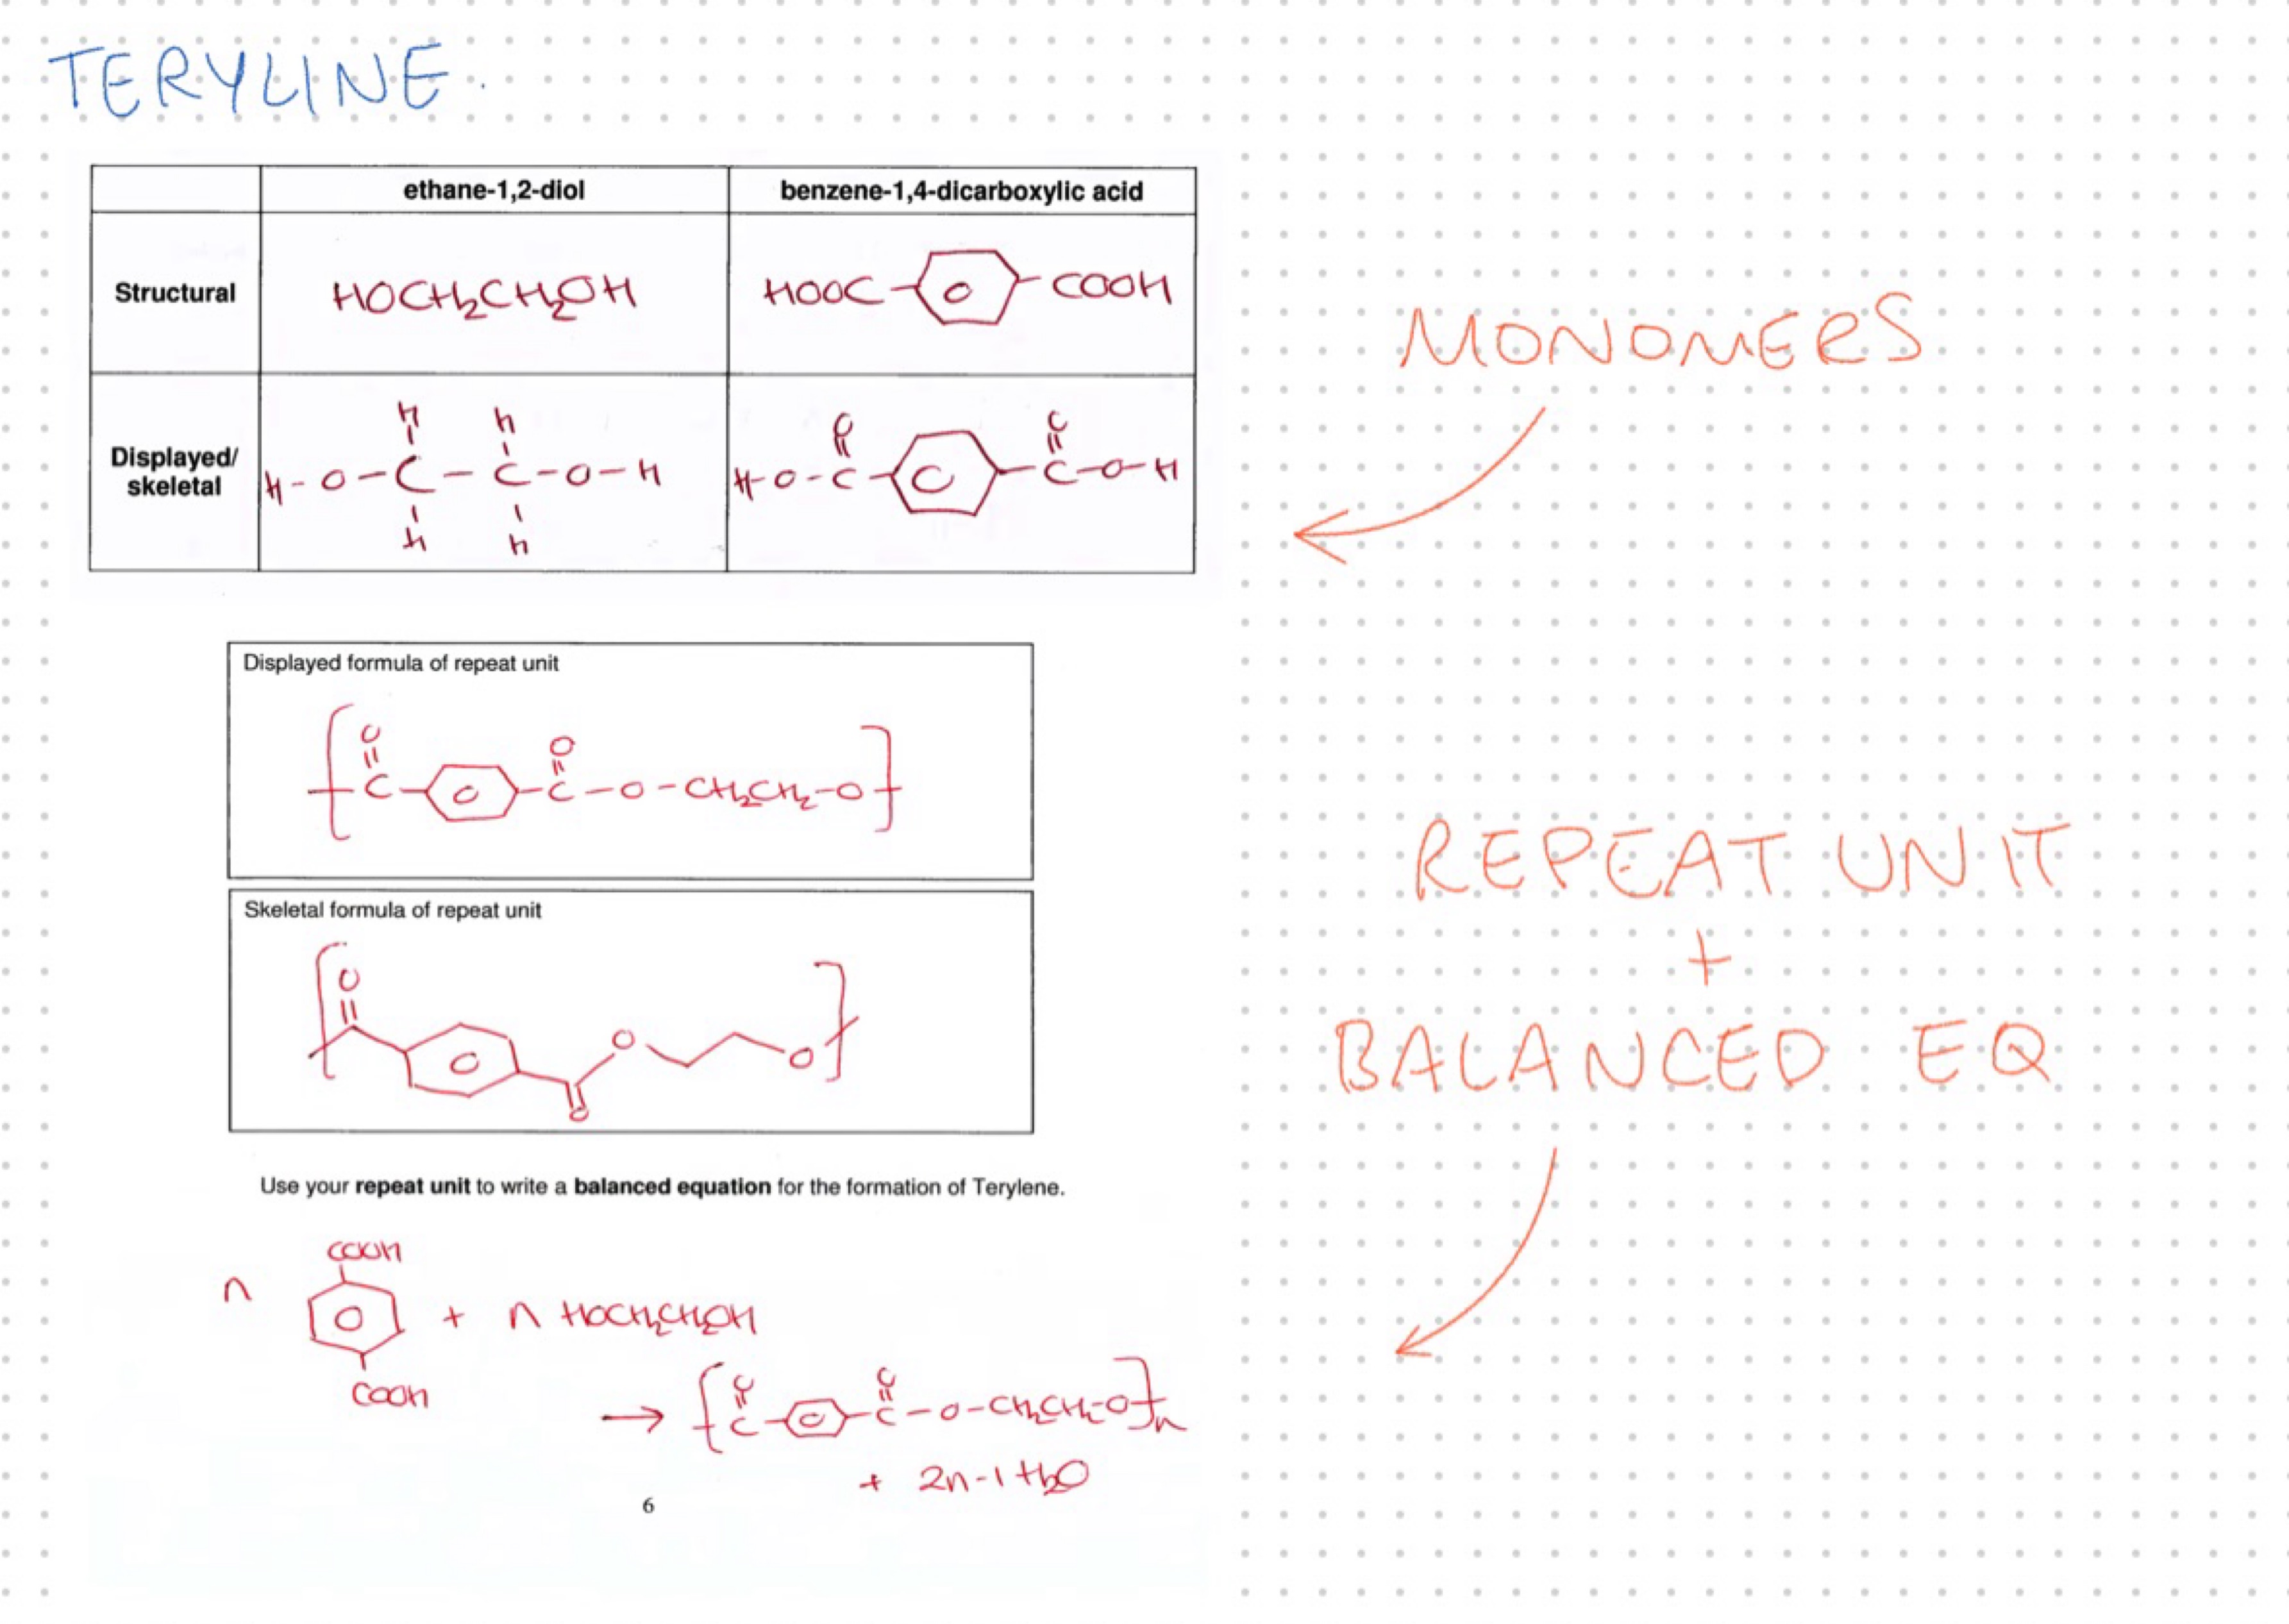 TERYLINE.
ethane-1,2-diol
benzene-1,4-dicarboxylic acid
Structural
HOCH₂CH₂OH
HOOC-
-COOH
MONOMERS
Displayed/
skeletal
H H
H-O-C-C-O-H
H H
O O
H-O-C- -C-O-H
Displayed formula of repeat unit
O O
[-C- -C-O-CH₂CH₂-O-]
Skeletal formula of repeat unit
O
O
O
O
REPEAT UNIT
+
BALANCED EQ
Use your repeat unit to write a balanced equation for the formation of Terylene.
COOH
n + n HOCH₂CH₂OH
COOH
O O
→ [-C- -C-O-CH₂CH₂-O-]n
+ 2n-1 H₂O
6